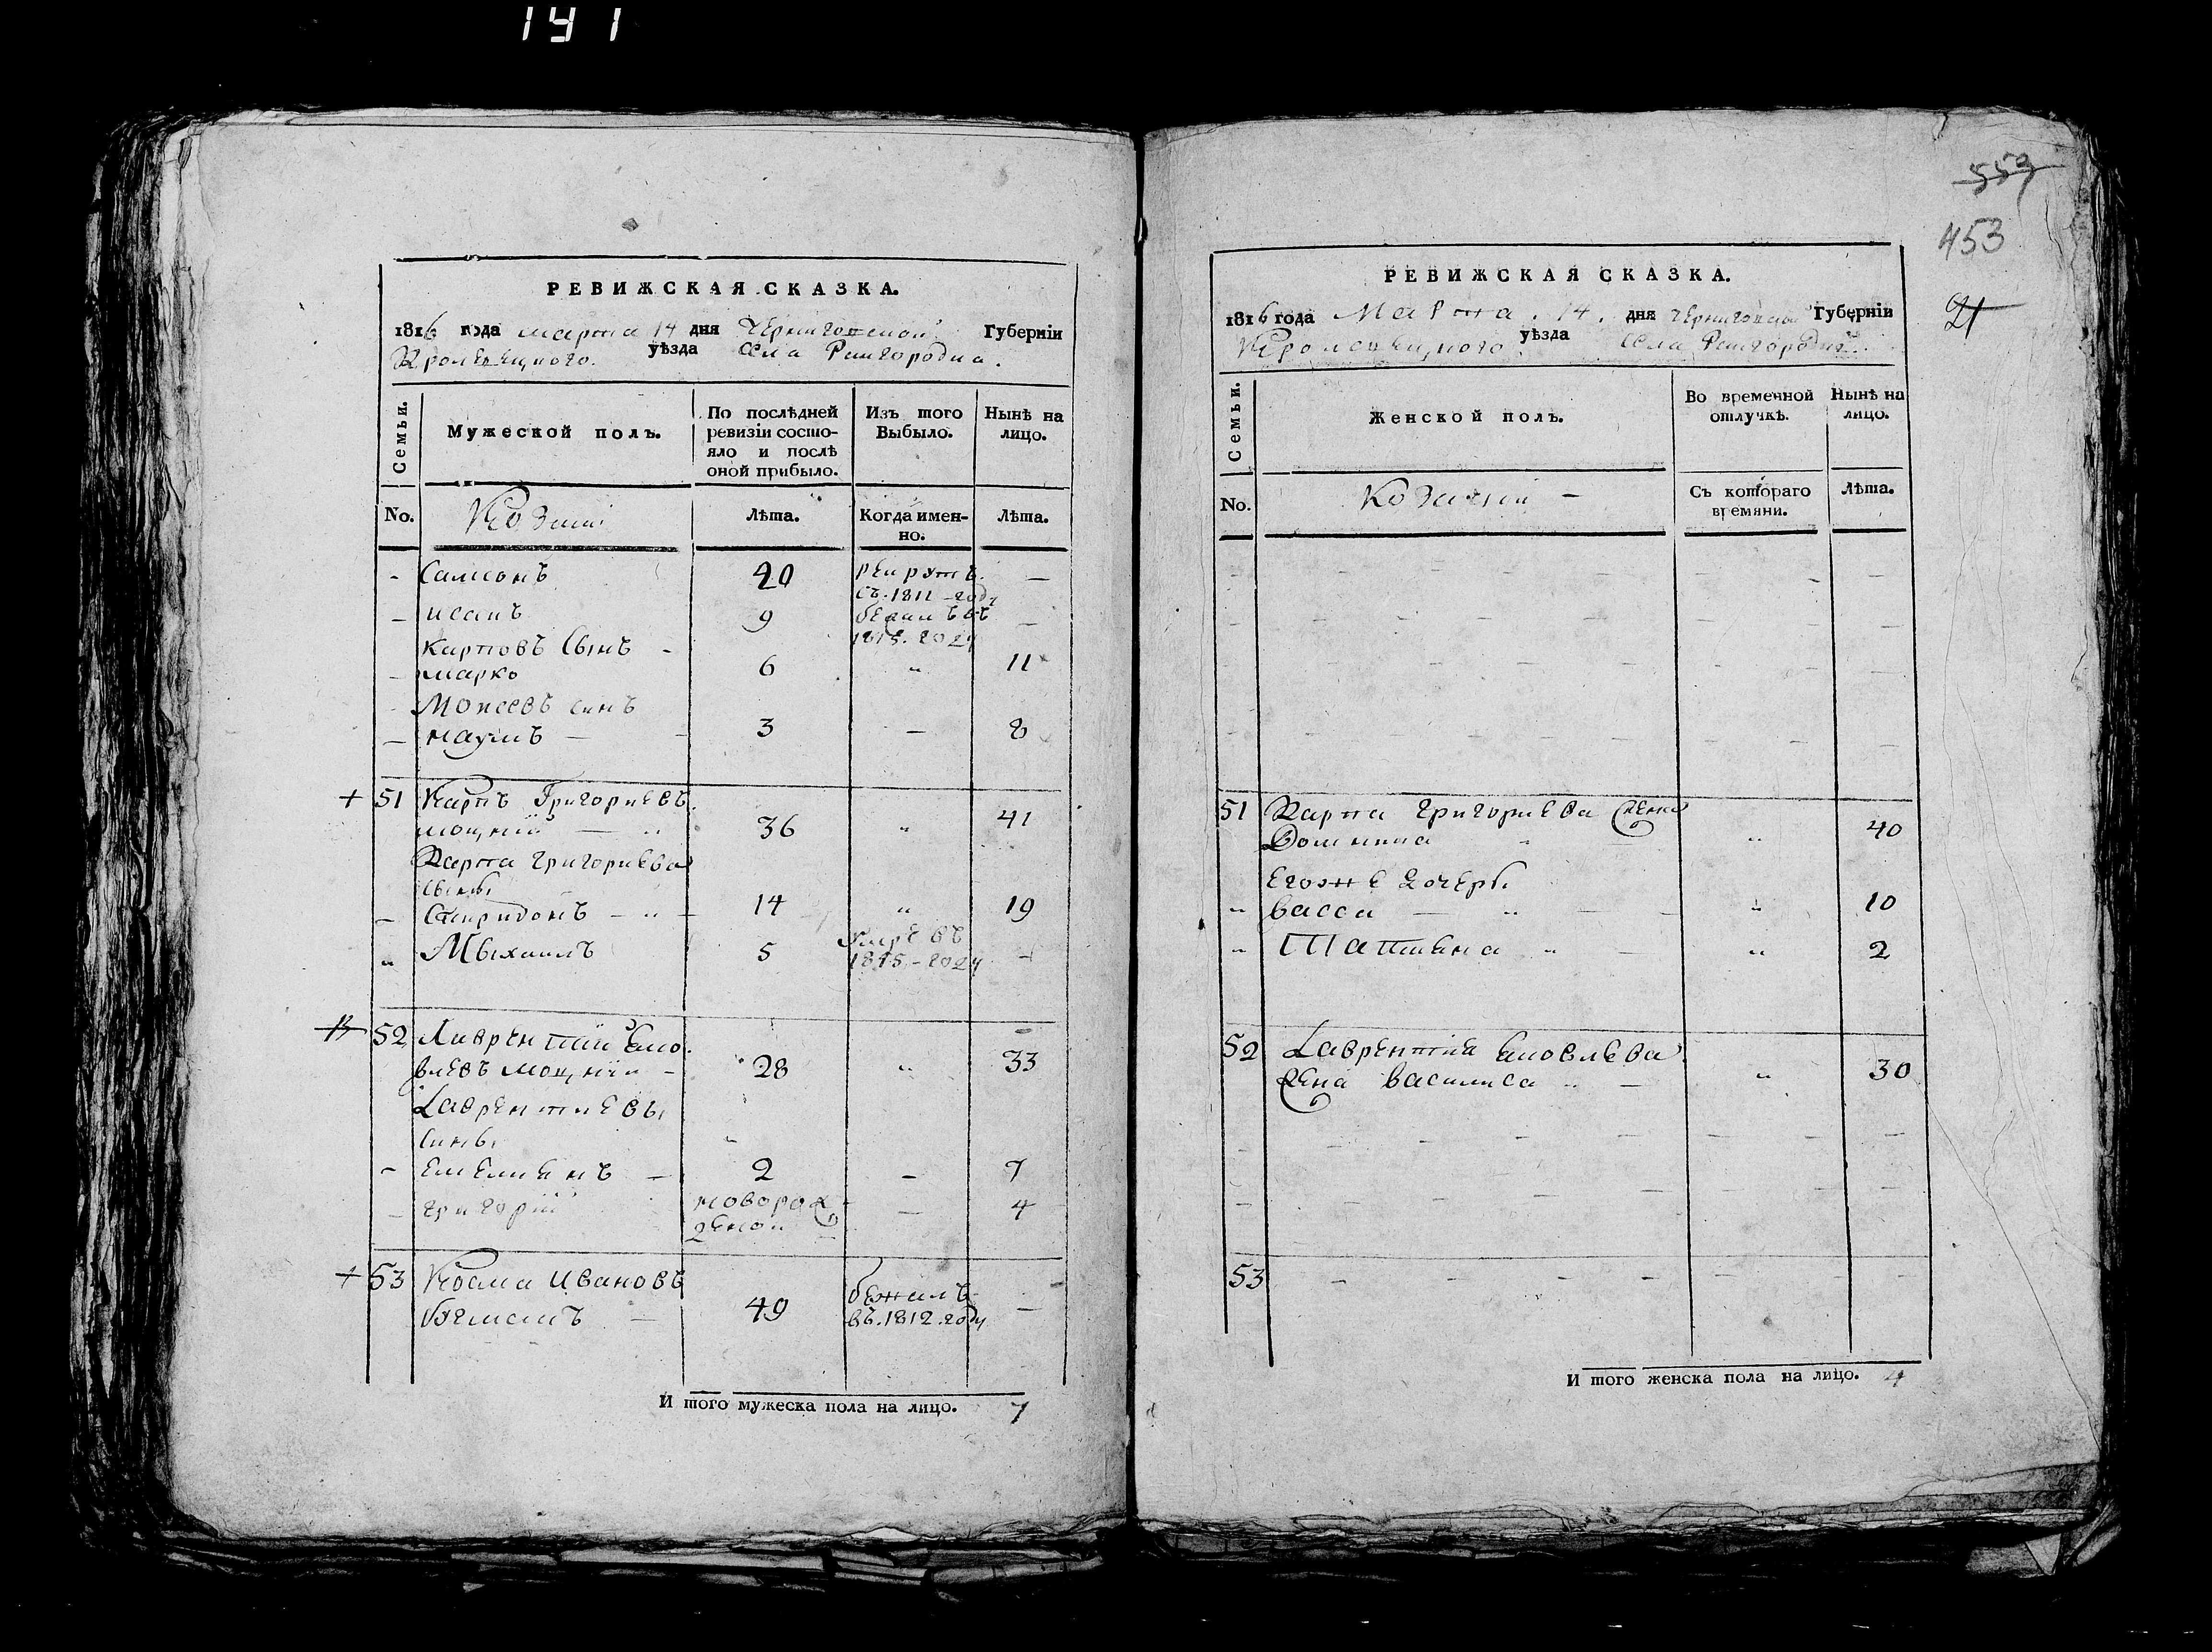 191
РЕВИЖСКАЯ СКАЗКА.
1816 года марта 14 дня Черниговской Губернїи
Кролевецкого уѣзда села Райгородка.
Семьи.
Мужеской полъ.
По послѣдней ревизїи состояло и послѣ оной прибыло.
Изъ того Выбыло.
Нынѣ на лицо.
No. Козаки Лѣта. Когда именно. Лѣта.
- Самсонъ 40 рекрутъ. съ. 1811 - году —
- исакъ 9 въ 1815. году —
Карповъ Сынъ -
- марко 6 " 11
Моисеевъ синъ
- наумъ — 3 — 8
+ 51 Карпъ Григориевъ.
— " 36 " 41
Карпа григориева
сыны
- Спиридонъ — " — 14 " 19
" Мыхаилъ 5 Умре въ 1815 - году -
52 Лаврентий Яковлевъ - 28 " 33
Лаврентиевы
сины
- Емелиянъ — 2 — 7
- григорий новорожденои — 4
+ 53 Козма Ивановъ
— 49 бежалъ въ. 1812. году —
И того мужеска пола на лицо. 7
559
453
21
РЕВИЖСКАЯ СКАЗКА.
1816 года Марта. 14. дня Черниговской Губернїи
Кролевецкого уѣзда села Райгородка.
Семьи.
Женской полъ.
Во временной отлучкѣ.
Нынѣ на лицо.
No. Козачки - Съ котораго времяни. Лѣта.
51 Карпа григориева жена
Домникиа " 40
Егоже дочеры
" васса — " — " 10
" Татияна " — " 2
52 Лаврентия Яковлева
жена василиса " — " 30
53
И того женска пола на лицо. 4